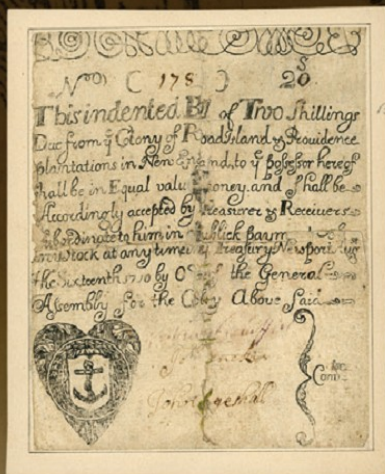 N ( 178 ) 20 S
This indented Bill of Two Shillings
Due from yͤ Colony of Road Island & Providence
plantations in New England, to yͤ posessor hereof
shall be in Equal value money, and shall be
Accordingly accepted by Treasurer & Receivers
subordinate to him in Publick
stock at any time Treasury Newport
the sixteenth 1710 by of the General
Assembly for the Above said
John
Com